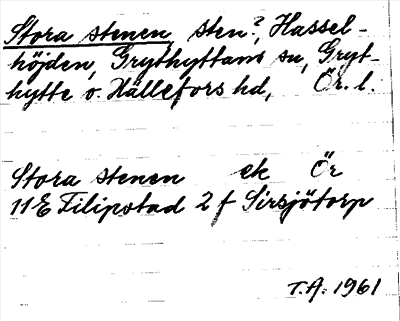 Stora stenen, sten?, Hassel-
höjden, Grythyttans sn, Gryt-
hytte o. Hällefors hd, Ör. l.
Stora stenen ek Ör
11E Filipstad 2 f Sirsjötorp
T.A. 1961